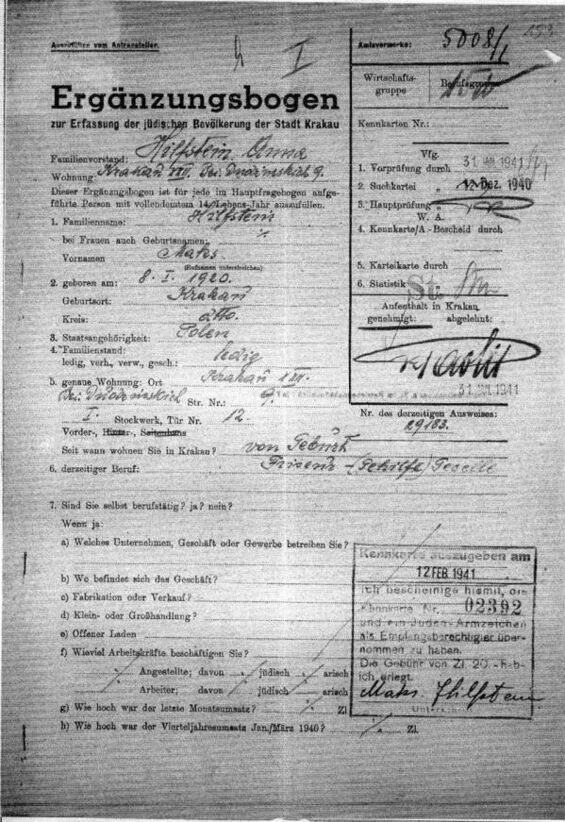 Ausfüllen vom Antragsteller.
I
Ergänzungsbogen
zur Erfassung der jüdischen Bevölkerung der Stadt Krakau
Familienvorstand: Hilfstein Anna
Wohnung: Krakau VIII.
Dieser Ergänzugsbogen ist für jede im Hauptfragebogen aufge-
führte Person mit vollendetem 14 Lebens-Jahr auszufüllen.
1. Familienname: Hilfstein
bei Frauen auch Geburtsnamen:
Vornamen Maks
(Rufnamen unterstreichen)
2. geboren am: 8. I. 1920.
Geburtsort: Krakau
Kreis: dtto.
3. Staatsangehörigkeit: Polen
4. Familienstand:
ledig, verh., verw., gesch.: ledig
5. genaue Wohnung: Ort Krakau VIII.
Str. Nr.: 9.
I. Stockwerk, Tür Nr. 12
Vorder-, Hinter-, Seitenhaus
Seit wann wohnen Sie in Krakau? von Geburt
6. derzeitiger Beruf: (Gehilfe) Geselle
7. Sind Sie selbst berufstätig? ja? nein?
Wenn ja:
a) Welches Unternehmen, Geschäft oder Gewerbe betreiben Sie?
b) Wo befindet sich das Geschäft?
c) Fabrikation oder Verkauf?
d) Klein- oder Großhandlung?
e) Offener Laden
f) Wieviel Arbeitskräfte beschäftigen Sie?
Angestellte; davon jüdisch arisch
Arbeiter; davon jüdisch arisch
g) Wie hoch war der letzte Monatsumsatz? Zl.
h) Wie hoch war der Vierteljahresumsatz Jan./März 1940? Zl.
Amtsvermerke: 5008/1
153
Wirtschafts-
gruppe
Berufsgruppe
Kennkarten Nr.:
Vfg.
1. Vorprüfung 31 JAN. 1941
2. Suchkartei " 12 Dez. 1940
3. Hauptprüfung "
W. A.
4. Kennkarte/A.-Bescheid durch
5. Karteikarte durch
6. Statistik St.
Aufenthalt in Krakau
genehmigt: abgelehnt:
31 JAN. 1941
Nr. des derzeitigen Ausweises:
29183.
Kennkarte auszugeben am
12 FEB. 1941
Ich bescheinige hiemit, die
Kennkarte Nr. 02392
und ein Juden-Armzeichen
als Empfangsberechtigter über-
nommen zu haben.
Die Gebühr von Zl 20.- hab-
ich erlegt.
Maks. Hilfstein